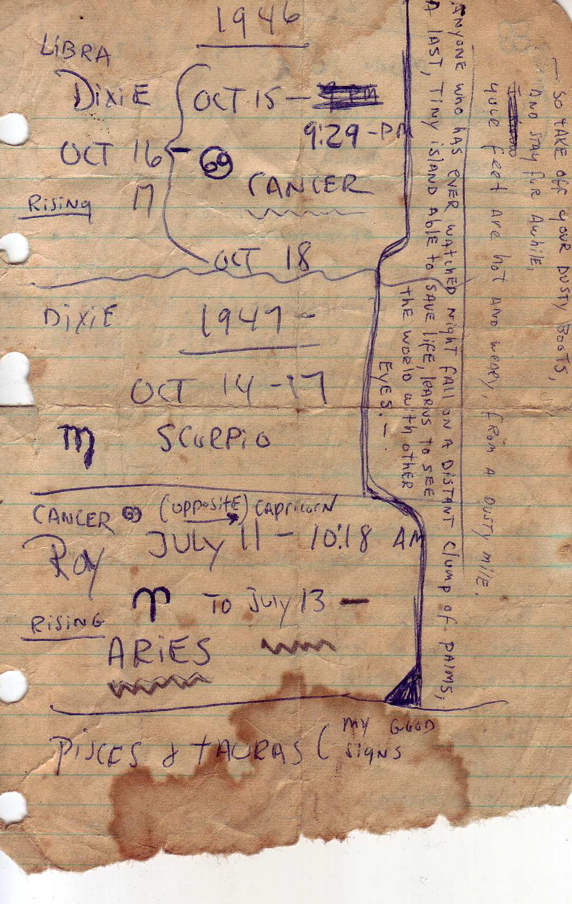 1946
LiBRA
DixiE
OCT 15 –
9:29 - PM
OCT 16
♋
CANCER
RisiNg 17
OCT 18
DixiE
1947 -
OCT 14 - 17
♏ SCORPiO
CANCER ♋ (OPPOSiTE) CAPRiCORN
ROY
JULY 11 - 10:18 AM
♈ TO JULY 13 -
RiSiNG
ARiES
PiSCES & TAURAS ( MY GOOD
SiGNS
– SO TAKE OFF yOUR DUSTY BOOTS,
AND STAY FUR AWHiLE,
youe feet Are hot AND weary, from A Dusty mile.
ANYONE WHO HAS EVER WATCHED NigHT FALL ON A DISTANT Clump of PAlms,
A LAST, TiNy iSlAND ABlE To SAVE liFE, lEARNS TO SEE
THE WORlD WiTH OTHER
EyES. –